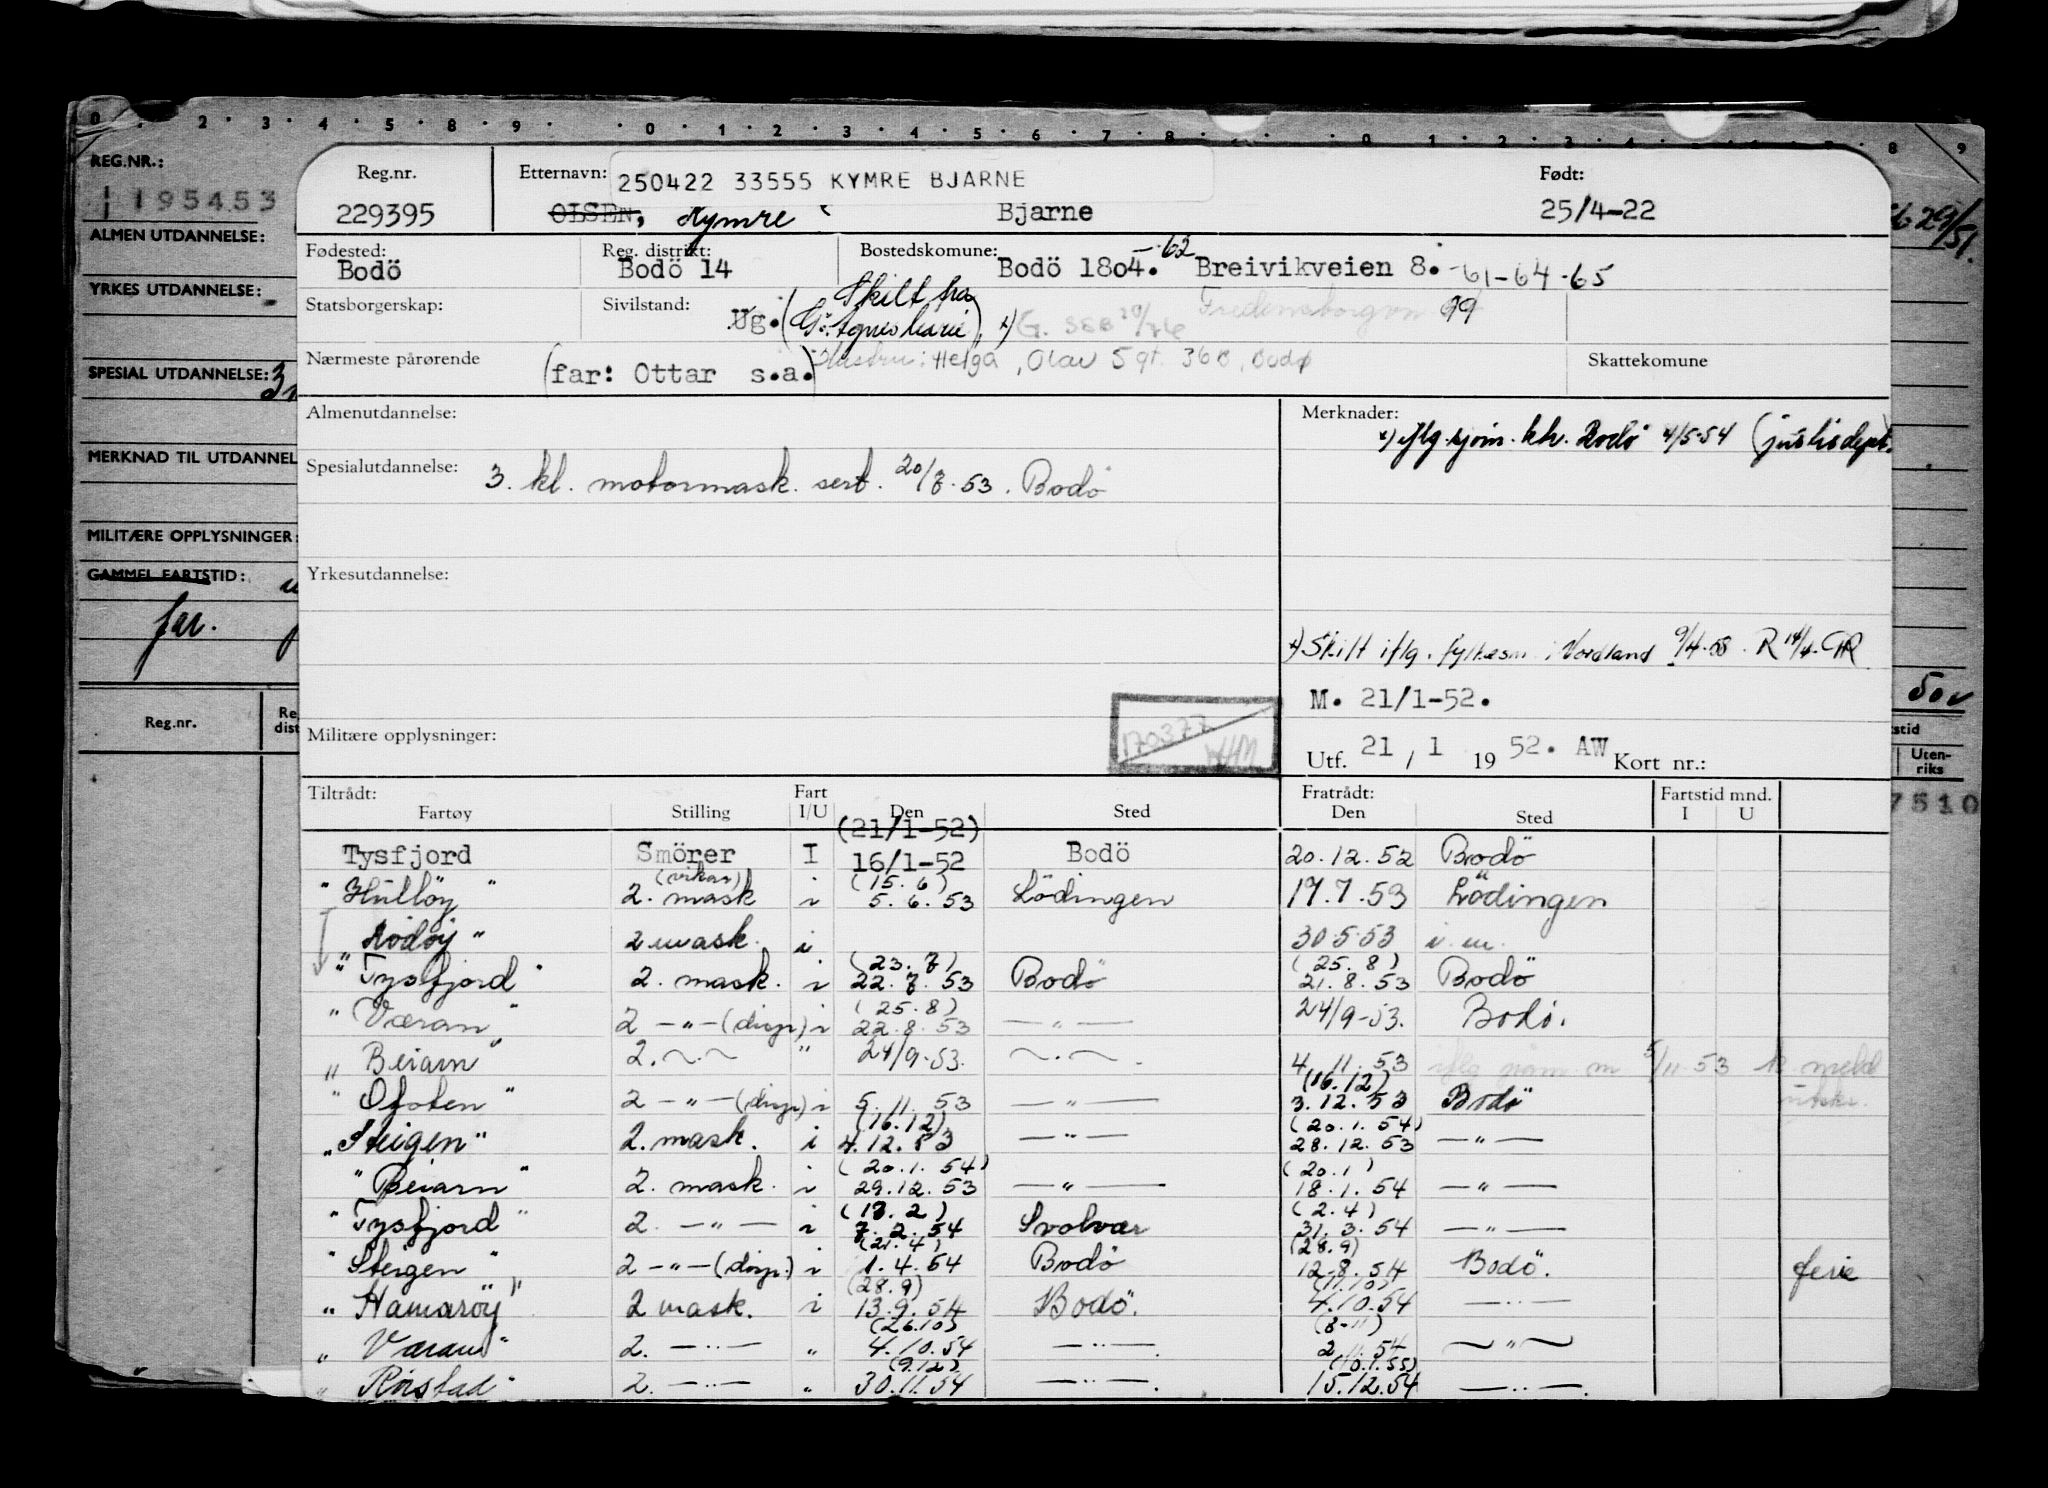 REG.NR.:
195453
ALMEN UTDANNELSE:
YRKES UTDANNELSE:
SPESIAL UTDANNELSE: 3
MERKNAD TIL UTDANNEL
MILITÆRE OPPLYSNINGER:
GAMMEL FARTSTID:
far.
Reg.nr.
29/51.
50
stid
Uten-
riks
7510
Reg.nr.
229395
Etternavn: 250422 33555 KYMRE BJARNE
OLSEN, Kymre Bjarne
Født:
25/4-22
Fødested:
Bodö
Reg. distrikt:
Bodö 14
Bostedskomune: Bodö 1804. -62 Breivikveien 8. -61-64-65
Statsborgerskap:
Sivilstand: Ug. (Skilt fra
G. Agnes Marie), x) G. SSB 20/ Fredensborgvn 99
Nærmeste pårørende (far: Ottar s.a.) Hustru: Helga, Olav 5 gt. 36B, Bodø
Skattekomune
Almenutdannelse:
Merknader:
x) iflg. sjøm. kh. Bodö 4/5-54 (justisdept.
Spesialutdannelse: 3. kl. motormask. sert. 20/7-53. Bodö
Yrkesutdannelse:
x) Skilt iflg. fylkesm. i Nordland 9/4-58. R 14/4. GR
M. 21/1-52.
Militære opplysninger:
170377
Utf. 21 / 1 19 52. AW Kort nr.:
Tiltrådt: Fart Fratrådt: Fartstid mnd.
Fartøy Stilling I/U Den Sted Den Sted I U
(21/1-52)
Tysfjord Smörer I 16/1-52 Bodö 20.12.52 Bodö
(vikar) (15.6)
"Hulløy" 2. mask i 5.6.53 Lödingen 17.7.53 Lödingen
"Rödöy" 2 mask. i 30.5.53 i.m.
(23.7) (25.8)
"Tysfjord" 2. mask. i 22.7.53 Bodö 21.8.53 Bodö
(25.8)
"Væran" 2 -"- (disp.) i 22.8.53 -"- 24/9-53. Bodö.
"Beiarn" 2. -"- " 24/9-53. -"- 4.11.53 iflg. m 5/11.53
(16.12)
"Ofoten" 2 -"- (disp.) i 5.11.53 -"- 3.12.53 Bodö
(16.12) (20.1.54)
"Steigen" 2. mask. i 4.12.53 -"- 28.12.53 -"-
(20.1.54) (20.1)
"Beiarn" 2. mask. i 29.12.53 -"- 18.1.54 -"-
(13.2) (2.4)
"Tysfjord" 2. -"- i 7.2.54 Svolvær 31.3.54 -"-
(21.4) (28.9)
"Steigen" 2 -"- (disp.) i 1.4.54 Bodö 12.8.54 Bodö. ferie
(28.9) (11.10)
"Hamaröy" 2 mask. i 13.9.54 Bodö. 4.10.54 -"-
(26.10) (8-11)
"Væran" 2. -"- " 4.10.54 -"- 2.11.54 -"-
(9.12) (10.1.55)
"Röstad" 2. -"- " 30.11.54 -"- 15.12.54 -"-